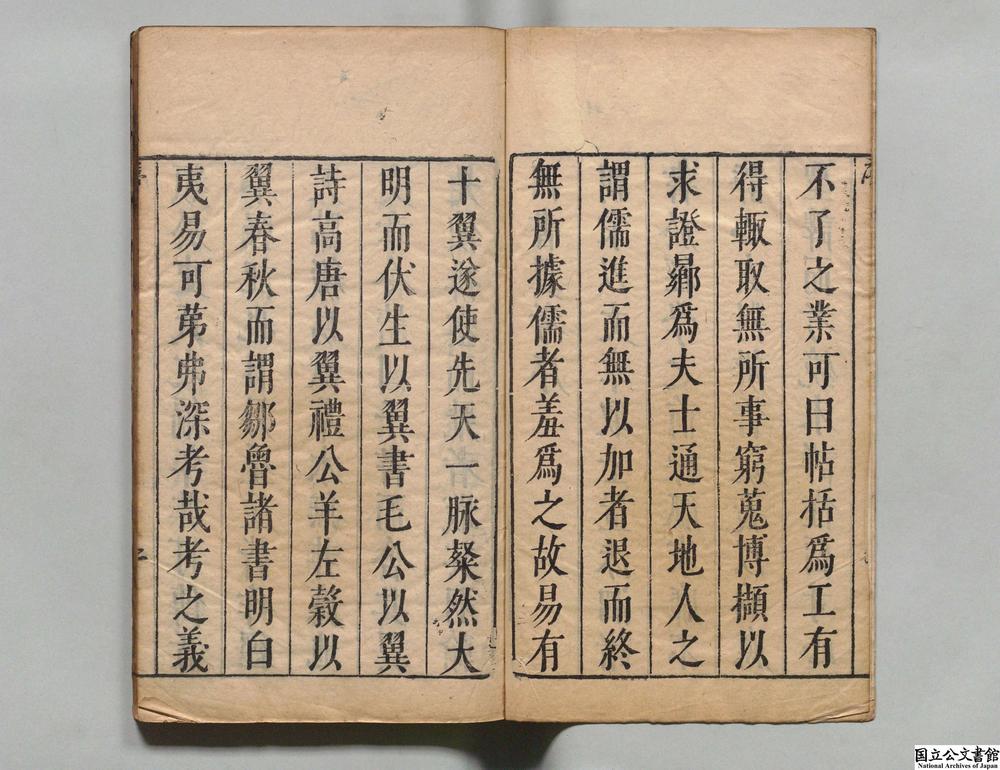 不了之業可曰帖括爲工有
得輙取無所事窮蒐博擷以
求證鄴爲夫士通天地人之
謂儒進而無以加者退而終
無所據儒者羞爲之故易有
十翼遂使先天一脉粲然大
明而伏生以翼書毛公以翼
詩高唐以翼禮公羊左穀以
翼春秋而謂鄒魯諸書明白
夷易可苐弗深考哉考之義
国立公文書館
National Archives of Japan